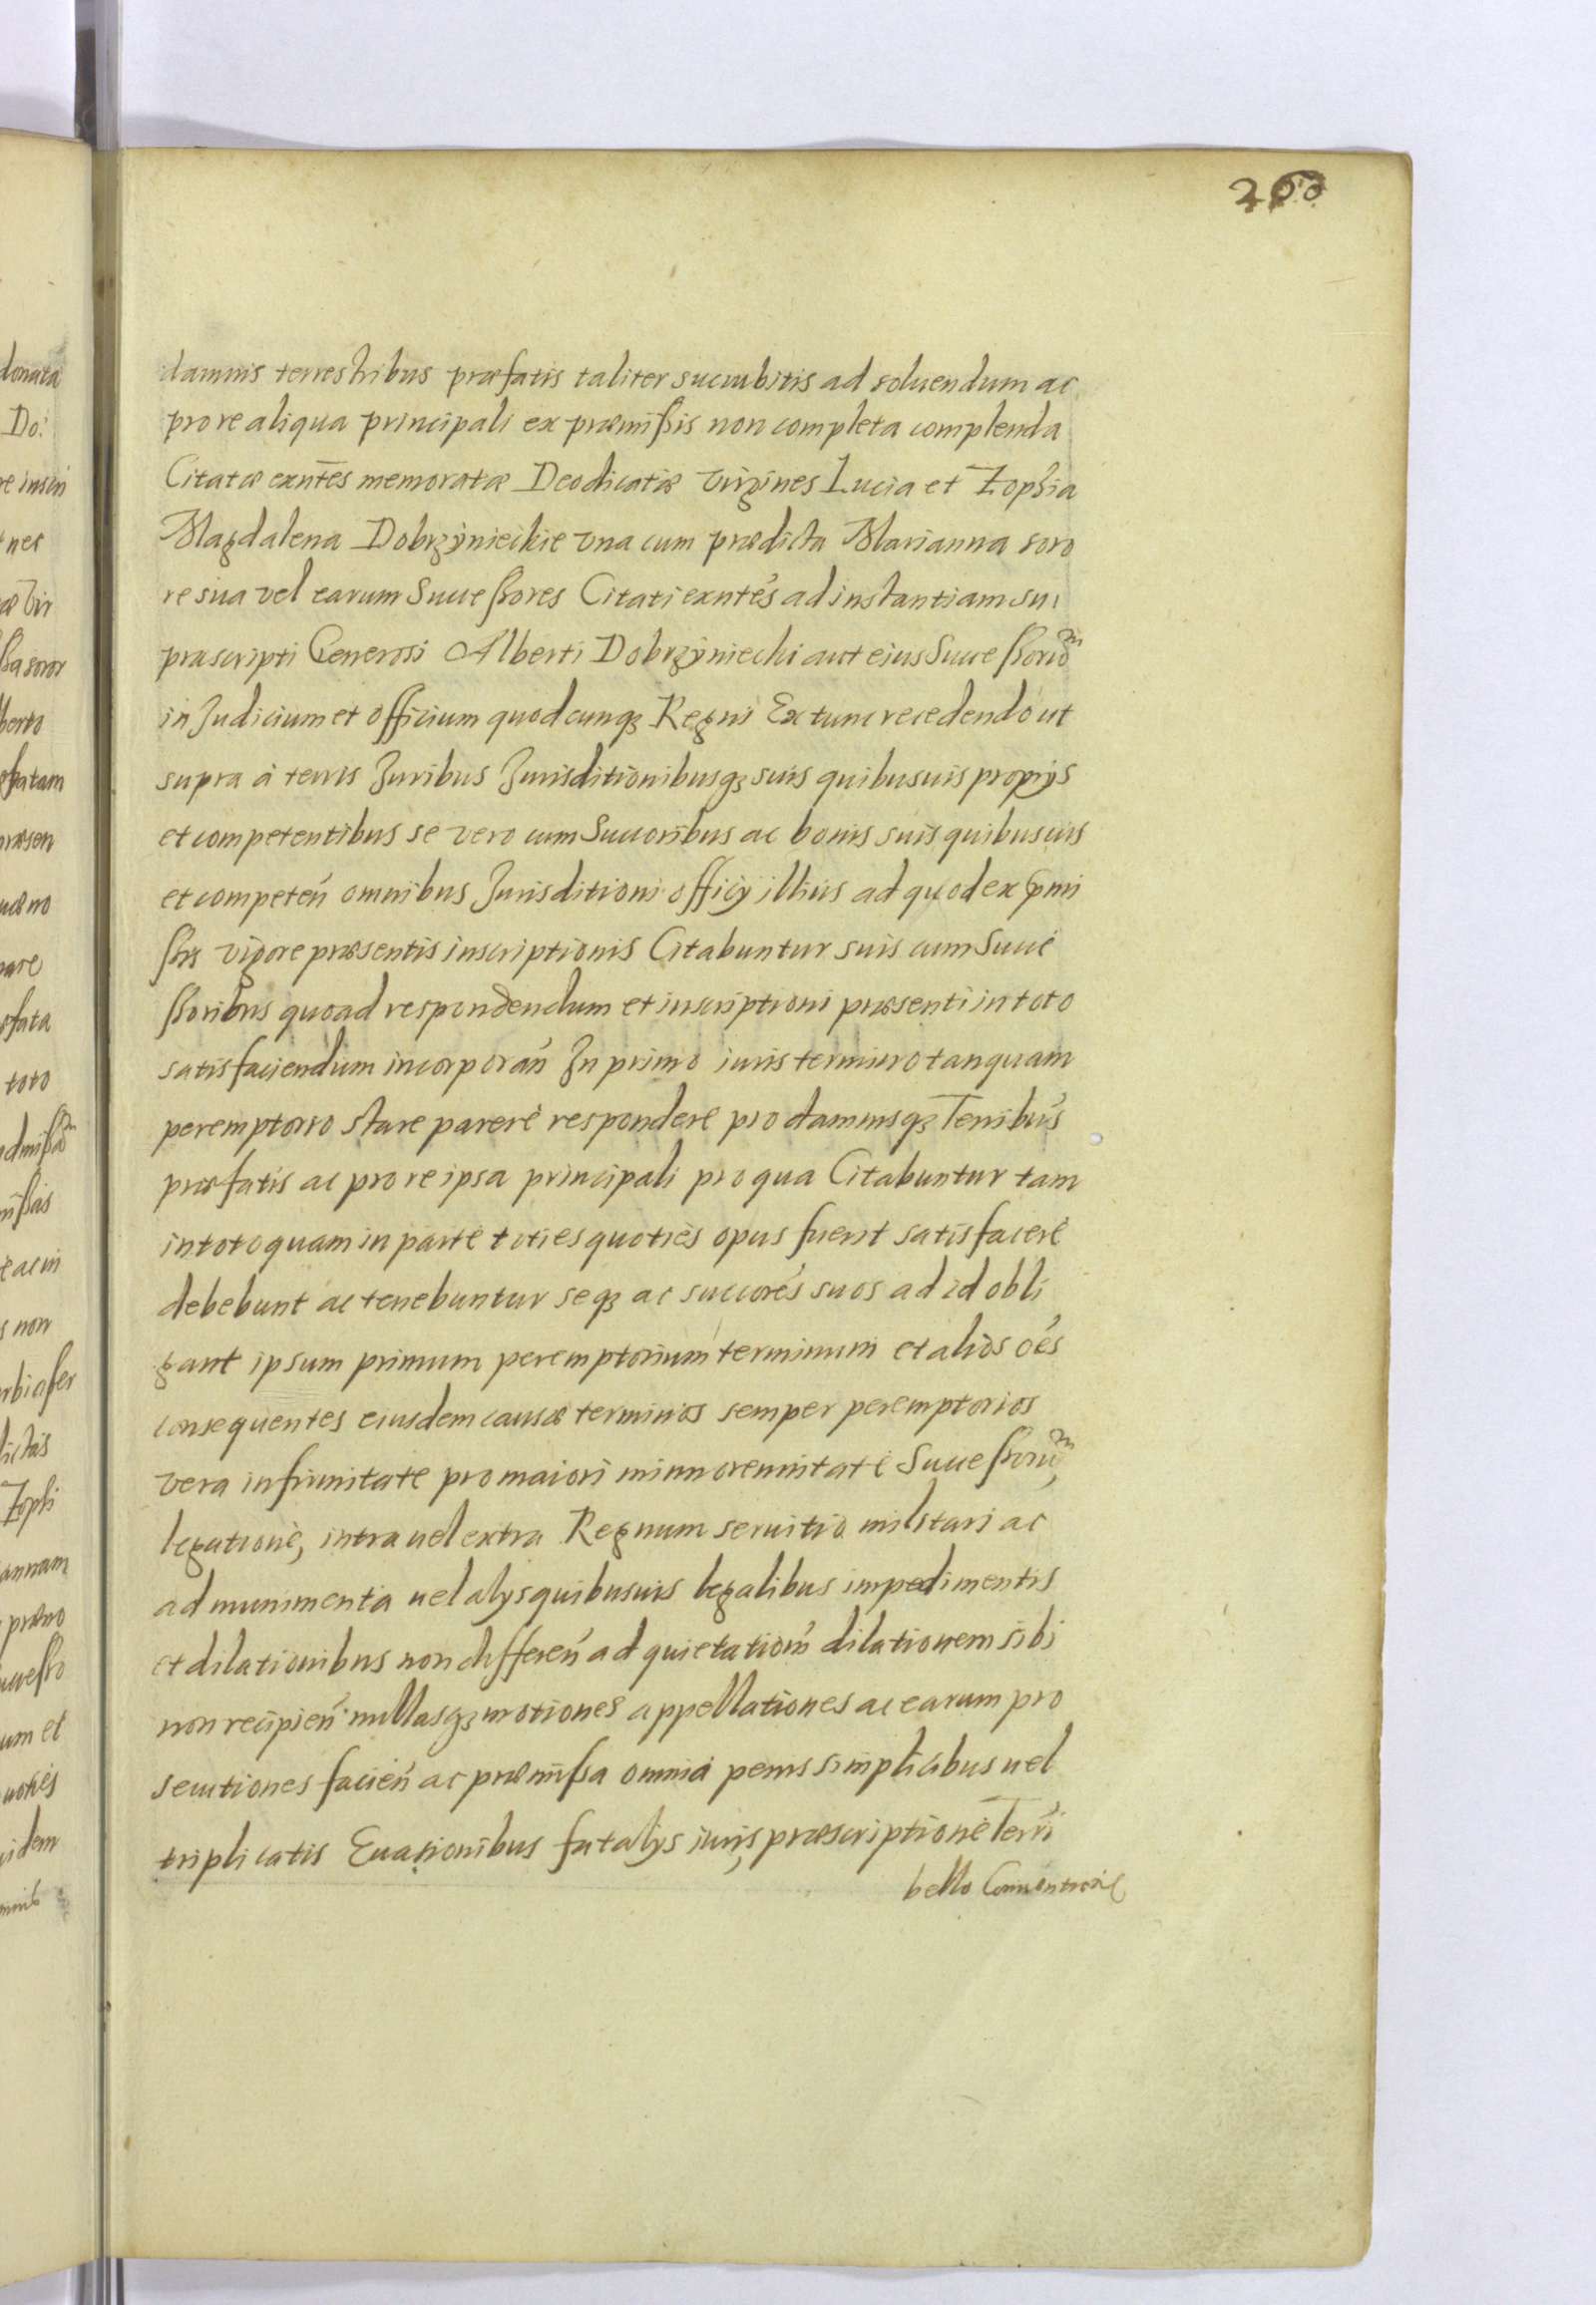 260
damnis terrestribus præfatis taliter succubitis ad soluendum ac
pro re aliqua principali ex præmissis non completa complenda
Citatæ exñtes memoratæ Deodicatæ virgines Lucia et Zophia
Magdalena Dobrzynieckie vna cum prædicta Marianna soro
re sua vel earum Successores Citati exntes ad instantiam su
prascripti Generosi Alberti Dobrzyniecki aut eius Successorũ
in Judicium et officium quodcunq3 Regni Ex tunc recedendo ut
supra à terris Juribus Jurisditionibusq3 suis quibusuis proprijs
et competentibus se vero cum Succoribus ac bonis suis quibusuis
et competeñ omnibus Jurisditioni officij illius ad quod ex pmi
ssis vigore præsentis inscriptionis Citabuntur suis cum Succe
ssoribus quoad respondendum et inscriptioni præsenti in toto
satisfaciendum incorporañ In primo iuris termino tanquam
peremptorio stare parere respondere pro damnisq3 Terribus
præfatis ac pro re ipsa principali pro qua Citabuntur tam
in toto quam in parte toties quoties opus fuerit satisfacere
debebunt ac tenebuntur seq3 ac succores suos ad id obli
gant ipsum primum peremptorium terminum et alios oes
consequentes eiusdem causæ terminos semper peremptorios
vera infirmitate pro maiori minorennitate Successorũ,
legatione, intra uel extra Regnum seruitio militari ac
ad munimenta uel alys quibusuis legalibus impedimentis
et dilationibus non differeñ ad quietationẽ dilationem sibi
non recipieñ nullasq3 motiones appellationes ac earum pro
secutiones facieñ ac præmissa omnia penis simplicibus uel
triplicatis Euasionibus fatalys iuris præscriptione Terri
bello